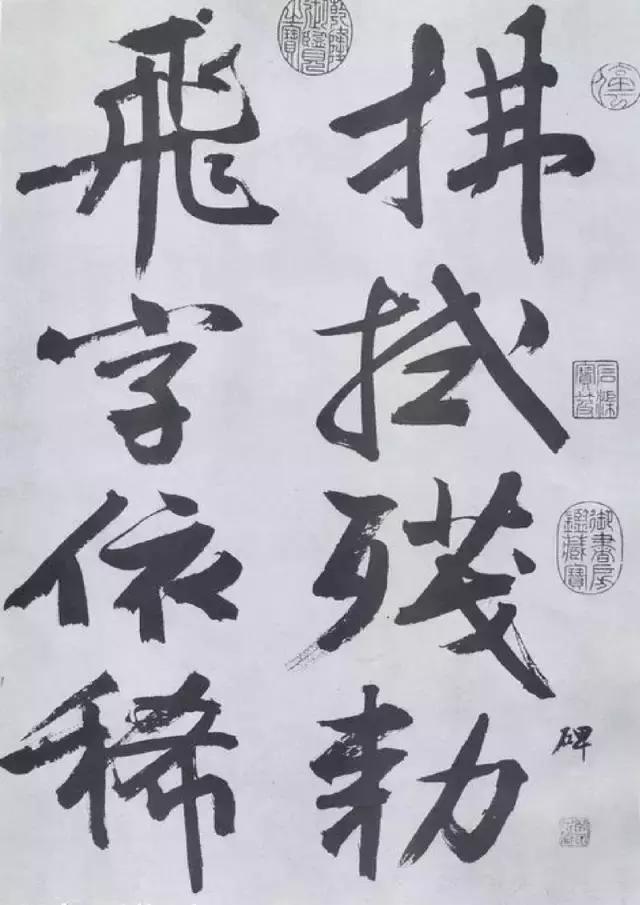 停雲
拂拭殘勑
碑
飛字依稀
乾隆御覽之寶
石渠寶笈
御書房鑑藏寶